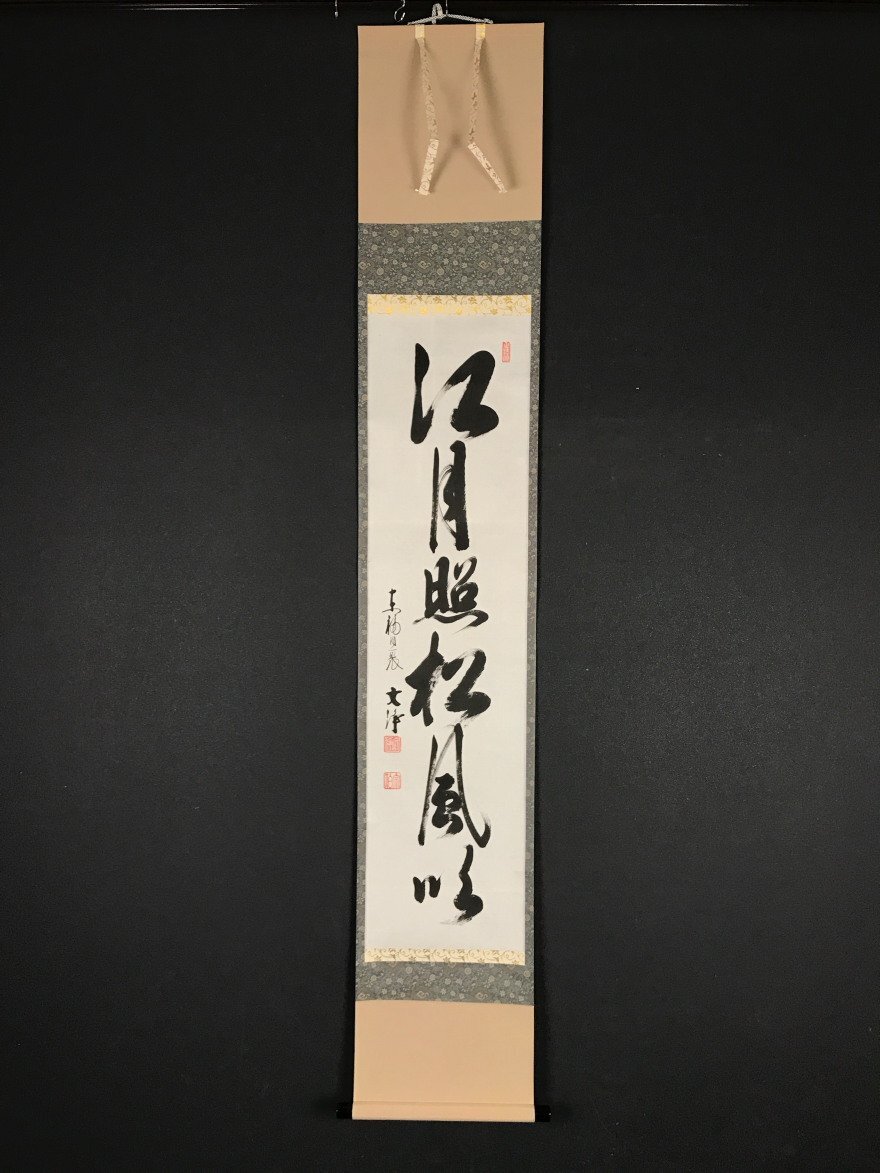 江月照松風吹
文浄